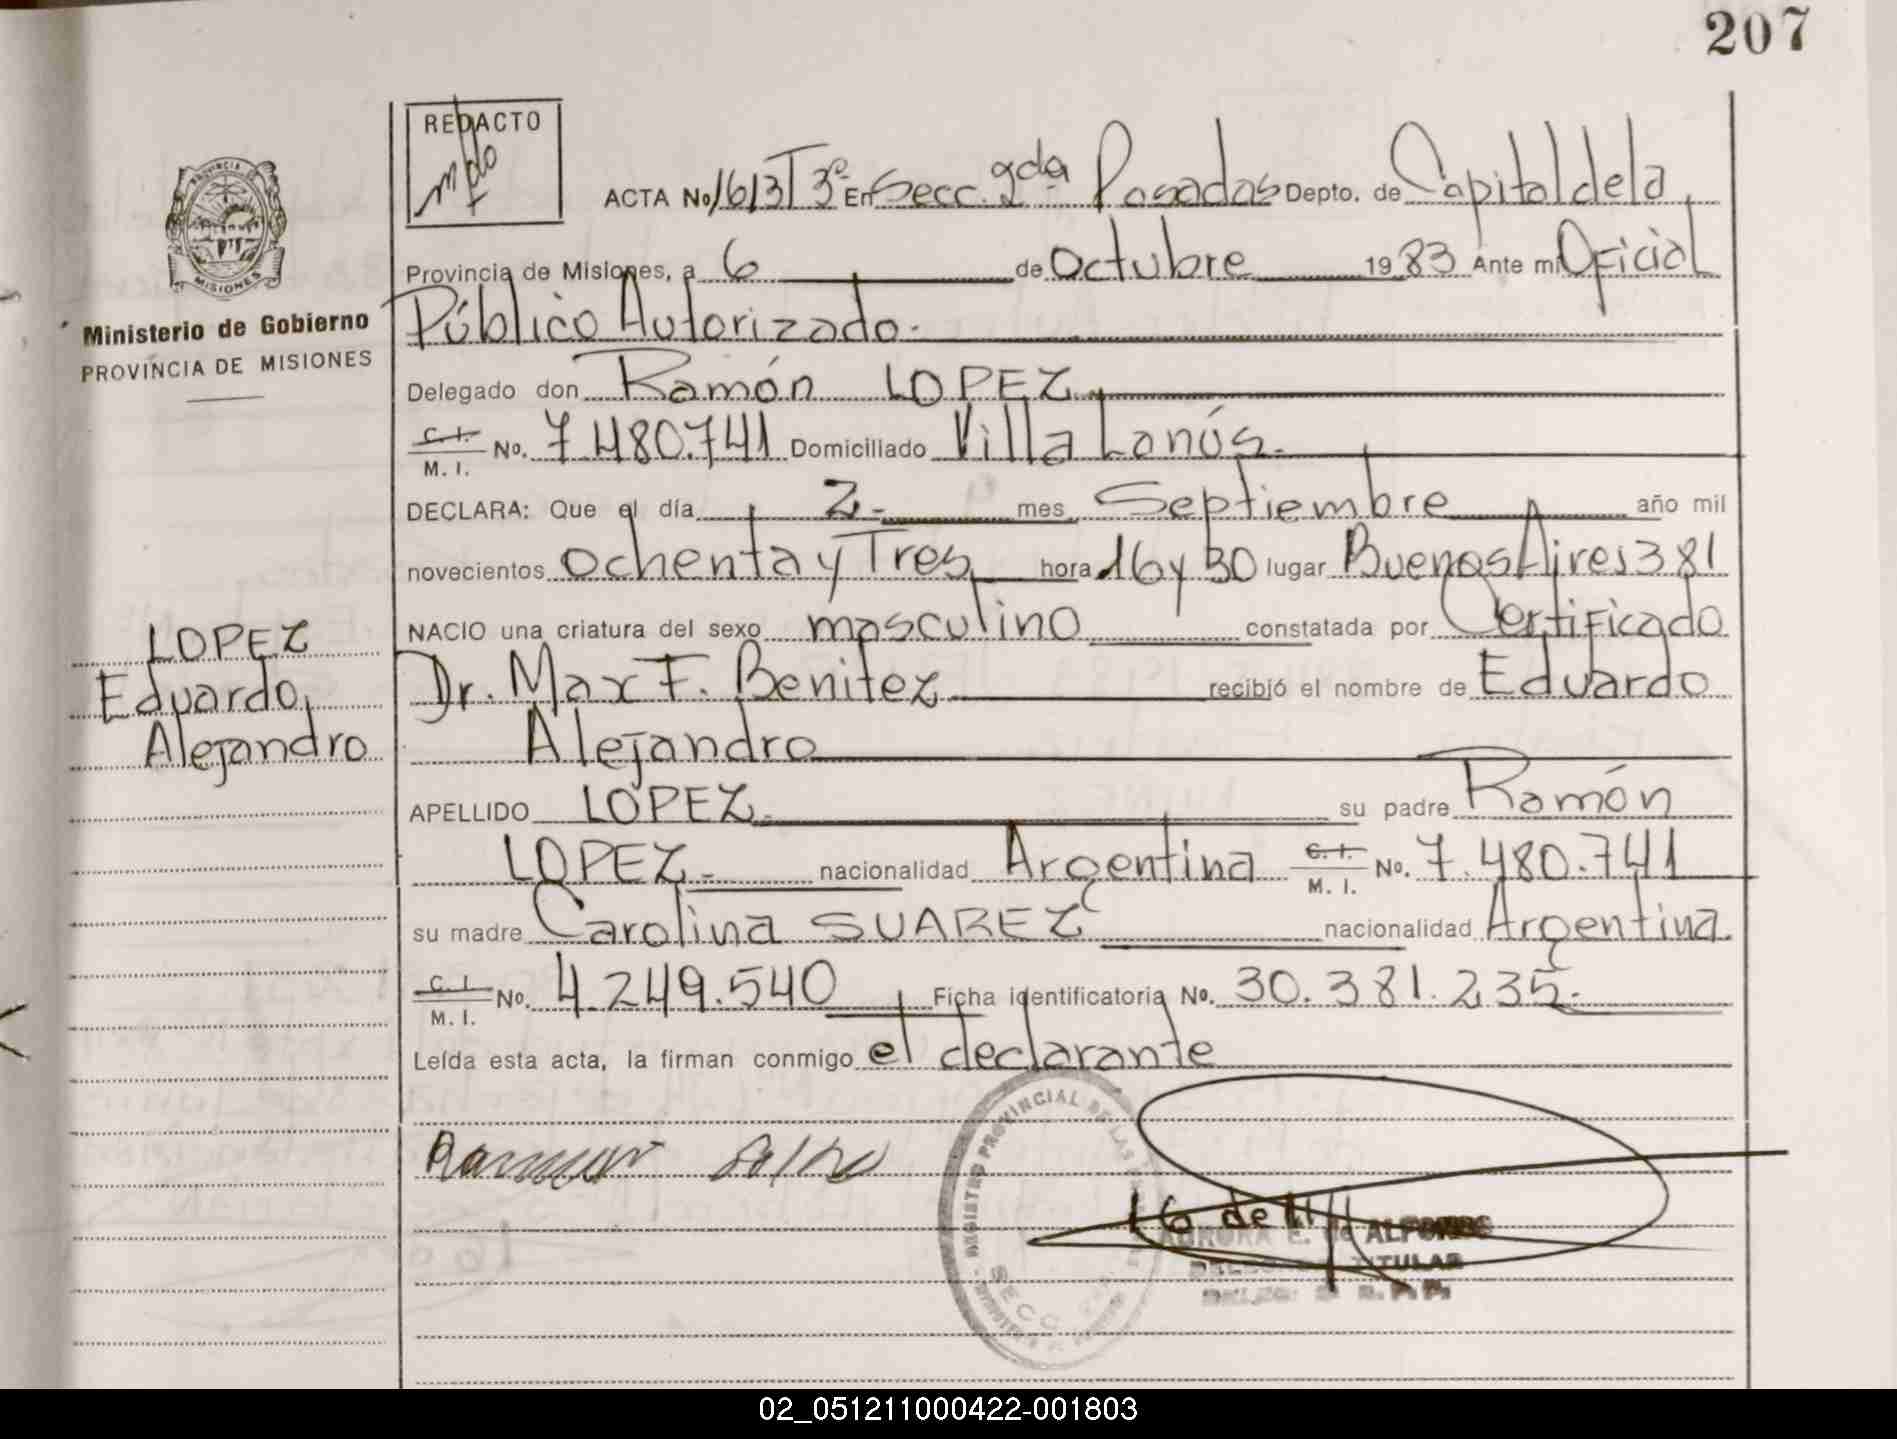 207
REDACTO
PROVINCIA DE MISIONES
Ministerio de Gobierno
PROVINCIA DE MISIONES
ACTA No 1613 T 3º En Secc. 2da Posadas Depto. de Capital de la
Provincia de Misiones, a 6 de Octubre 1983 Ante mi Oficial
Público Autorizado.
Delegado don Ramón LOPEZ
C. I. M. I. No. 7.480.741 Domiciliado Villa Lanús.
DECLARA: Que el día 2- mes Septiembre año mil
novecientos ochenta y Tres hora 16 y 30 lugar Buenos Aires 381
NACIO una criatura del sexo masculino constatada por Certificado
Dr. Max F. Benitez recibió el nombre de Eduardo
Alejandro
LOPEZ
Eduardo
Alejandro
APELLIDO LOPEZ su padre Ramón
LOPEZ- nacionalidad Argentina C. I. M. I. No. 7.480.741
su madre Carolina SUAREZ nacionalidad Argentina.
C. I. M. I. No. 4.249.540 Ficha identificatoria No. 30.381.235.
Leída esta acta, la firman conmigo el declarante
REGISTRO PROVINCIAL DE LAS
SECC.
AURORA E. de ALFONSO
TITULAR
02_051211000422-001803